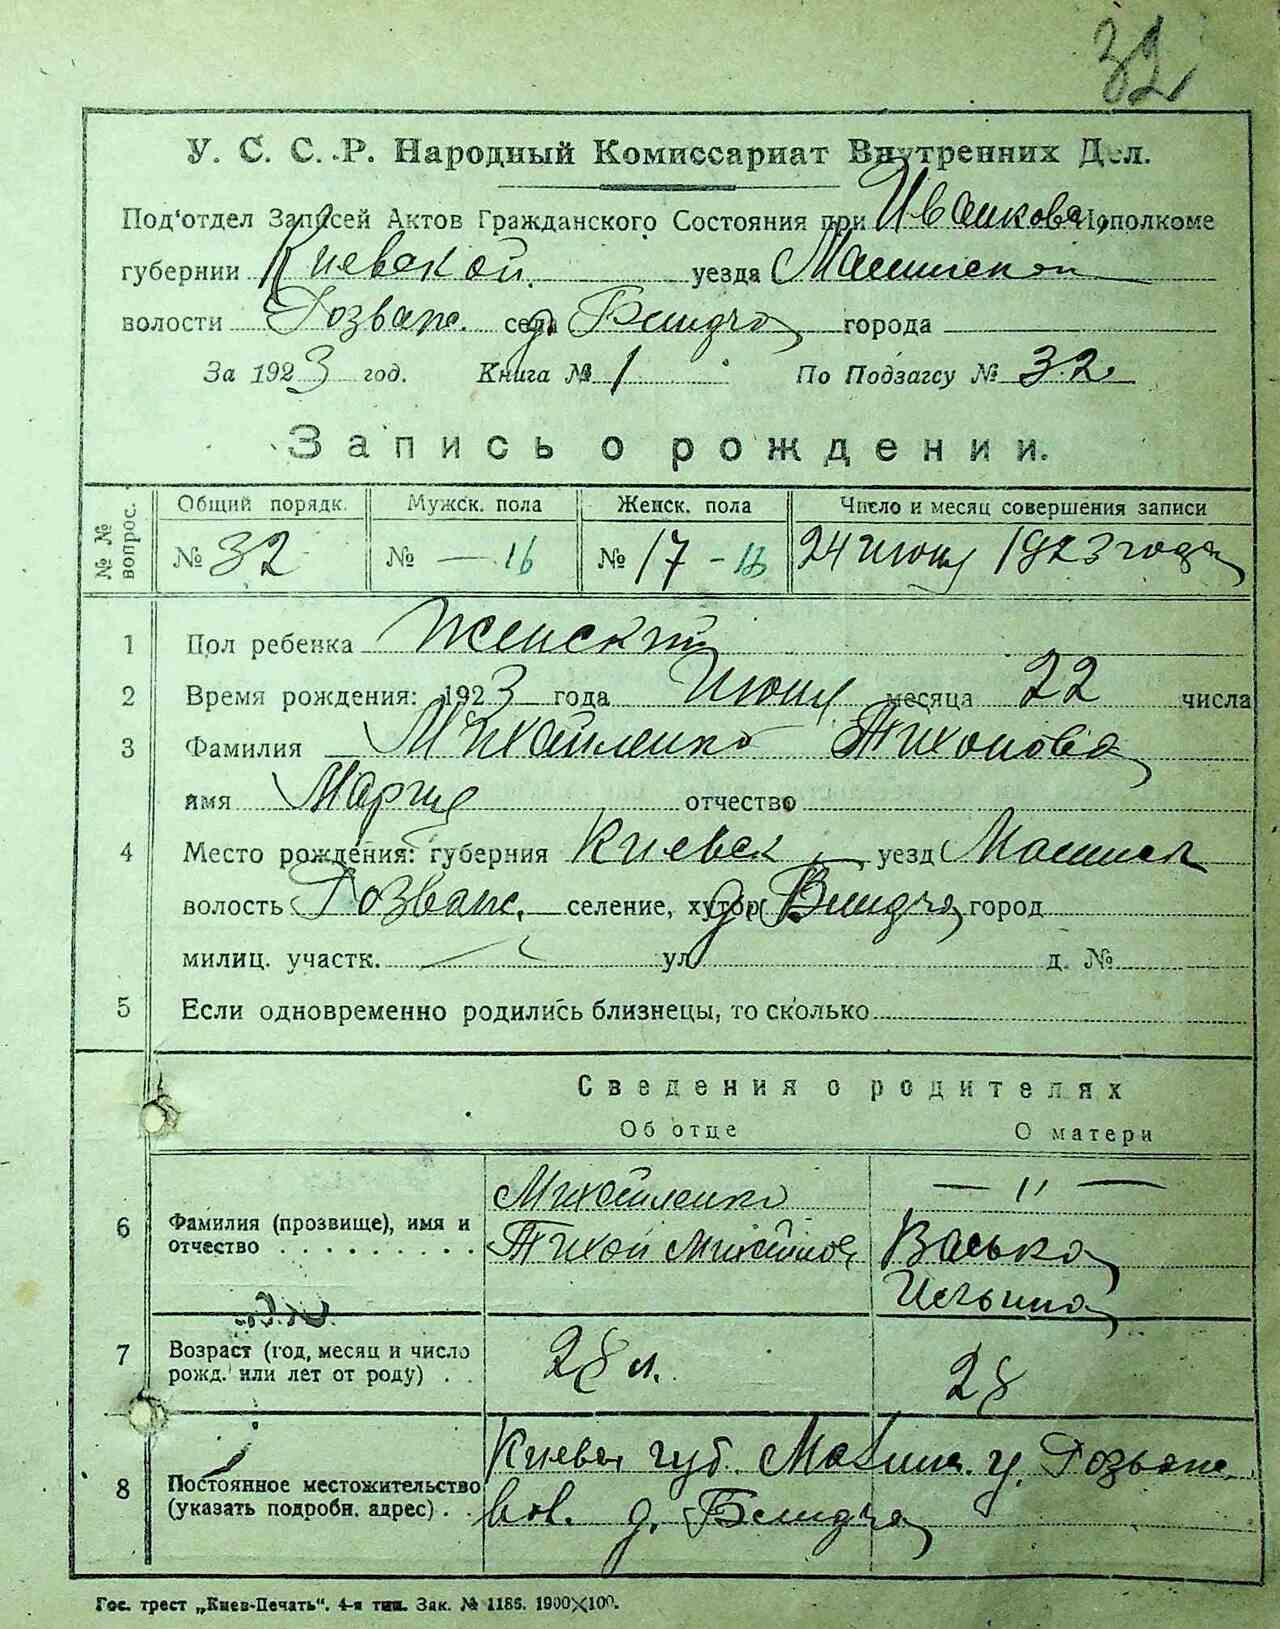 32
У. С. С. Р. Народный Комиссариат Внутренних Дел.
Под'отдел Записей Актов Гражданского Состояния при Иванков. Исполкоме
губернии Киевской уезда
волости Розваж. села д. города
За 1923 год. Книга № 1 По Подзагсу № 32.
Запись о рождении.
№ № вопрос. Общий порядк. Мужск. пола Женск. пола Число и месяц совершения записи
№ 32 № — 16 № 17 - 16 24 июня 1923 года
1 Пол ребенка Женский
2 Время рождения: 1923 года Июня месяца 22 числа
3 Фамилия Михайленко Тихонова
имя Мария отчество
4 Место рождения: губерния Киевск уезд
волость Розваж. селение, хутор д. город
милиц. участк. ул д. №
5 Если одновременно родились близнецы, то сколько
Сведения о родителях
Об отце О матери
6 Фамилия (прозвище), имя и отчество Михайленко — " —
Тихон Михайлов Васька
Ильина
7 Возраст (год, месяц и число рожд. или лет от роду) 28 л. 28
8 Постоянное местожительство (указать подробн. адрес) Киевск губ. у. Розваж.
вол. д.
Гос. трест „Киев-Печать". 4-я тип. Зак. № 1186. 1900×100.